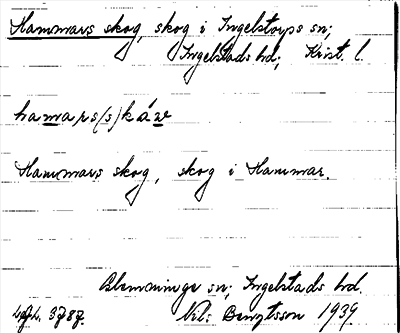 Hammars skog, skog i Ingelstorps sn;
Ingelstads hd; Krist. l.
hamars(s)káw
Hammars skog, skog i Hammar.
Glemminge sn; Ingelstads hd.
3787. Nils Bengtsson 1939